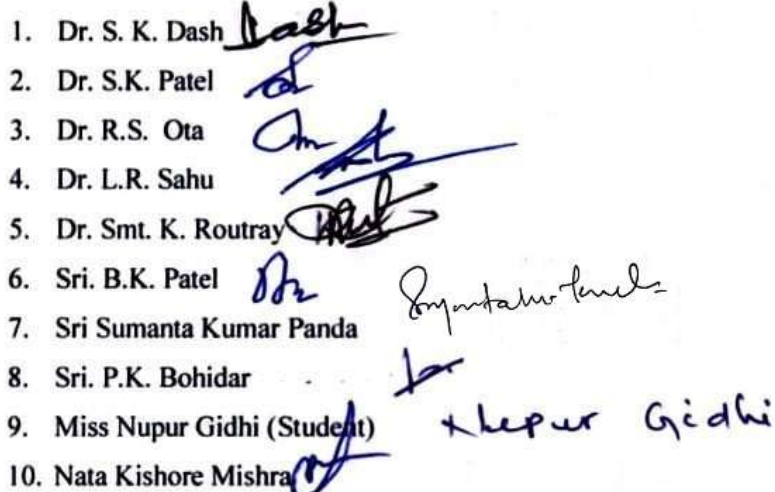 1. Dr. S. K. Dash Dash
2. Dr. S.K. Patel
3. Dr. R.S. Ota
4. Dr. L.R. Sahu
5. Dr. Smt. K. Routray
6. Sri. B.K. Patel
7. Sri Sumanta Kumar Panda
8. Sri. P.K. Bohidar
9. Miss Nupur Gidhi (Student) Nupur Gidhi
10. Nata Kishore Mishra